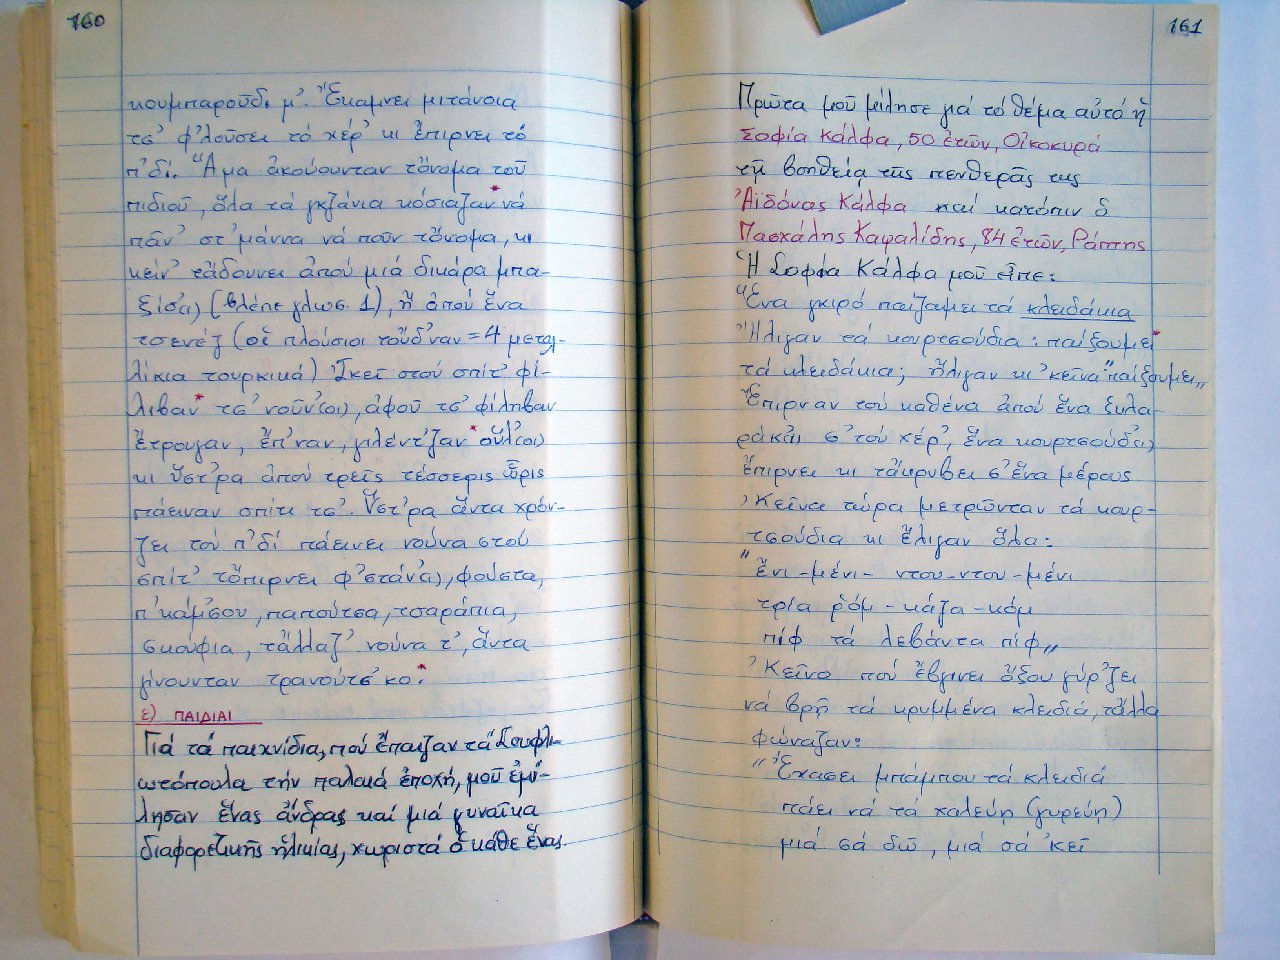 160
κουμπαροῦδι μ'. Ἔκαμνει μιτάνοια
τσ' φ'λοῦσει τό χέρ' κι ἔπιρνει τό
π'δί. Ἅμα ἀκούουνταν τὄνομα τοῦ
πιδιοῦ, ὅλα τά γκζάνια κόσιαζαν* νά
πᾶν' στ' μάννα νά ποῦν τὄνομα, κι
κείν' τἄδουνει ἀπού μιά δικάρα μπα-
(βλέπε γλωσ. 1), ἤ ἀπού ἕνα
τσενέζ (οἱ πλούσιοι τοὔδ'ναν = 4 μεταλ-
λίκια τουρκικά) Ἐκεῖ στού σπίτ' φί-
λιβαν* τσ' ἀφοῦ τσ' φίληβαν
ἔτρουγαν, ἔπ'ναν, γιλέντ'ζαν*
κι ὕστ'ρα ἀπού τρεῖς τέσσερις ὧρις
πάειναν σπίτι τσ'. Ὕστ'ρα ἅντα χρόν-
ζει τού π'δί πάεινει νούνα στού
σπίτ' τὄπιρνει φούστα,
π'κάμ'σου, παπούτσα, τσαράπια,
σκούφια, τἄλλαζ' νούνα τ', ἅντα
γίνουνταν τρανούτσ'κο.*
ε) ΠΑΙΔΙΑΙ
Γιά τά παιχνίδια, πού ἔπαιζαν τά Σουφλι-
ωτόπουλα τήν παλαιά ἐποχή, μοῦ ἐμί-
λησαν ἕνας ἄνδρας καί μιά γυναῖκα
διαφορετικῆς ἡλικίας, χωριστά ὁ κάθε ἕνας.
161
Πρῶτα μοῦ μίλησε γιά τό θέμα αὐτό ἡ
Σοφία Κάλφα, 50 ἐτῶν, Οἰκοκυρά
τῇ βοηθείᾳ τῆς πενθερᾶς της
Ἀϊδόνας Κάλφα καί κατόπιν ὁ
Πασχάλης Καψαλίδης, 84 ἐτῶν, Ράπτης
Ἡ Σοφία Κάλφα μοῦ εἶπε:
"Ἕνα γκιρό παίζαμει τά κλειδάκια
Ἤλιγαν τά κουρτσούδια: παίξουμει*
τά κλειδάκια; ἤλιγαν κι 'κεῖνα "παίξουμει"
Ἔπιρναν τού καθένα ἀπού ἕνα ξυλα-
ράκ(ι) σ' τού χέρ', ἕνα κουρτσούδ(ι)
ἔπιρνει κι τἄκρυβει σ' ἕνα μέρους
'Κεῖνα τώρα μετρῶνταν τά κουρ-
τσούδια κι ἔλιγαν ὅλα:
"ἔνι-μένι-ντου-ντου-μένι
τρία ρόμ-κάζα-κόμ
πίφ τά λεβάντα πίφ"
'Κεῖνο πού ἔβγινει ὄξου γύρ'ζει
νά βρῇ τά κρυμμένα κλειδιά, τἄλλα
φώναζαν:
"Ἔχασει μπάμπου τά κλειδιά
πάει νά τά χαλεύῃ (γυρεύῃ)
μιά σά δῶ, μιά σά 'κεῖ